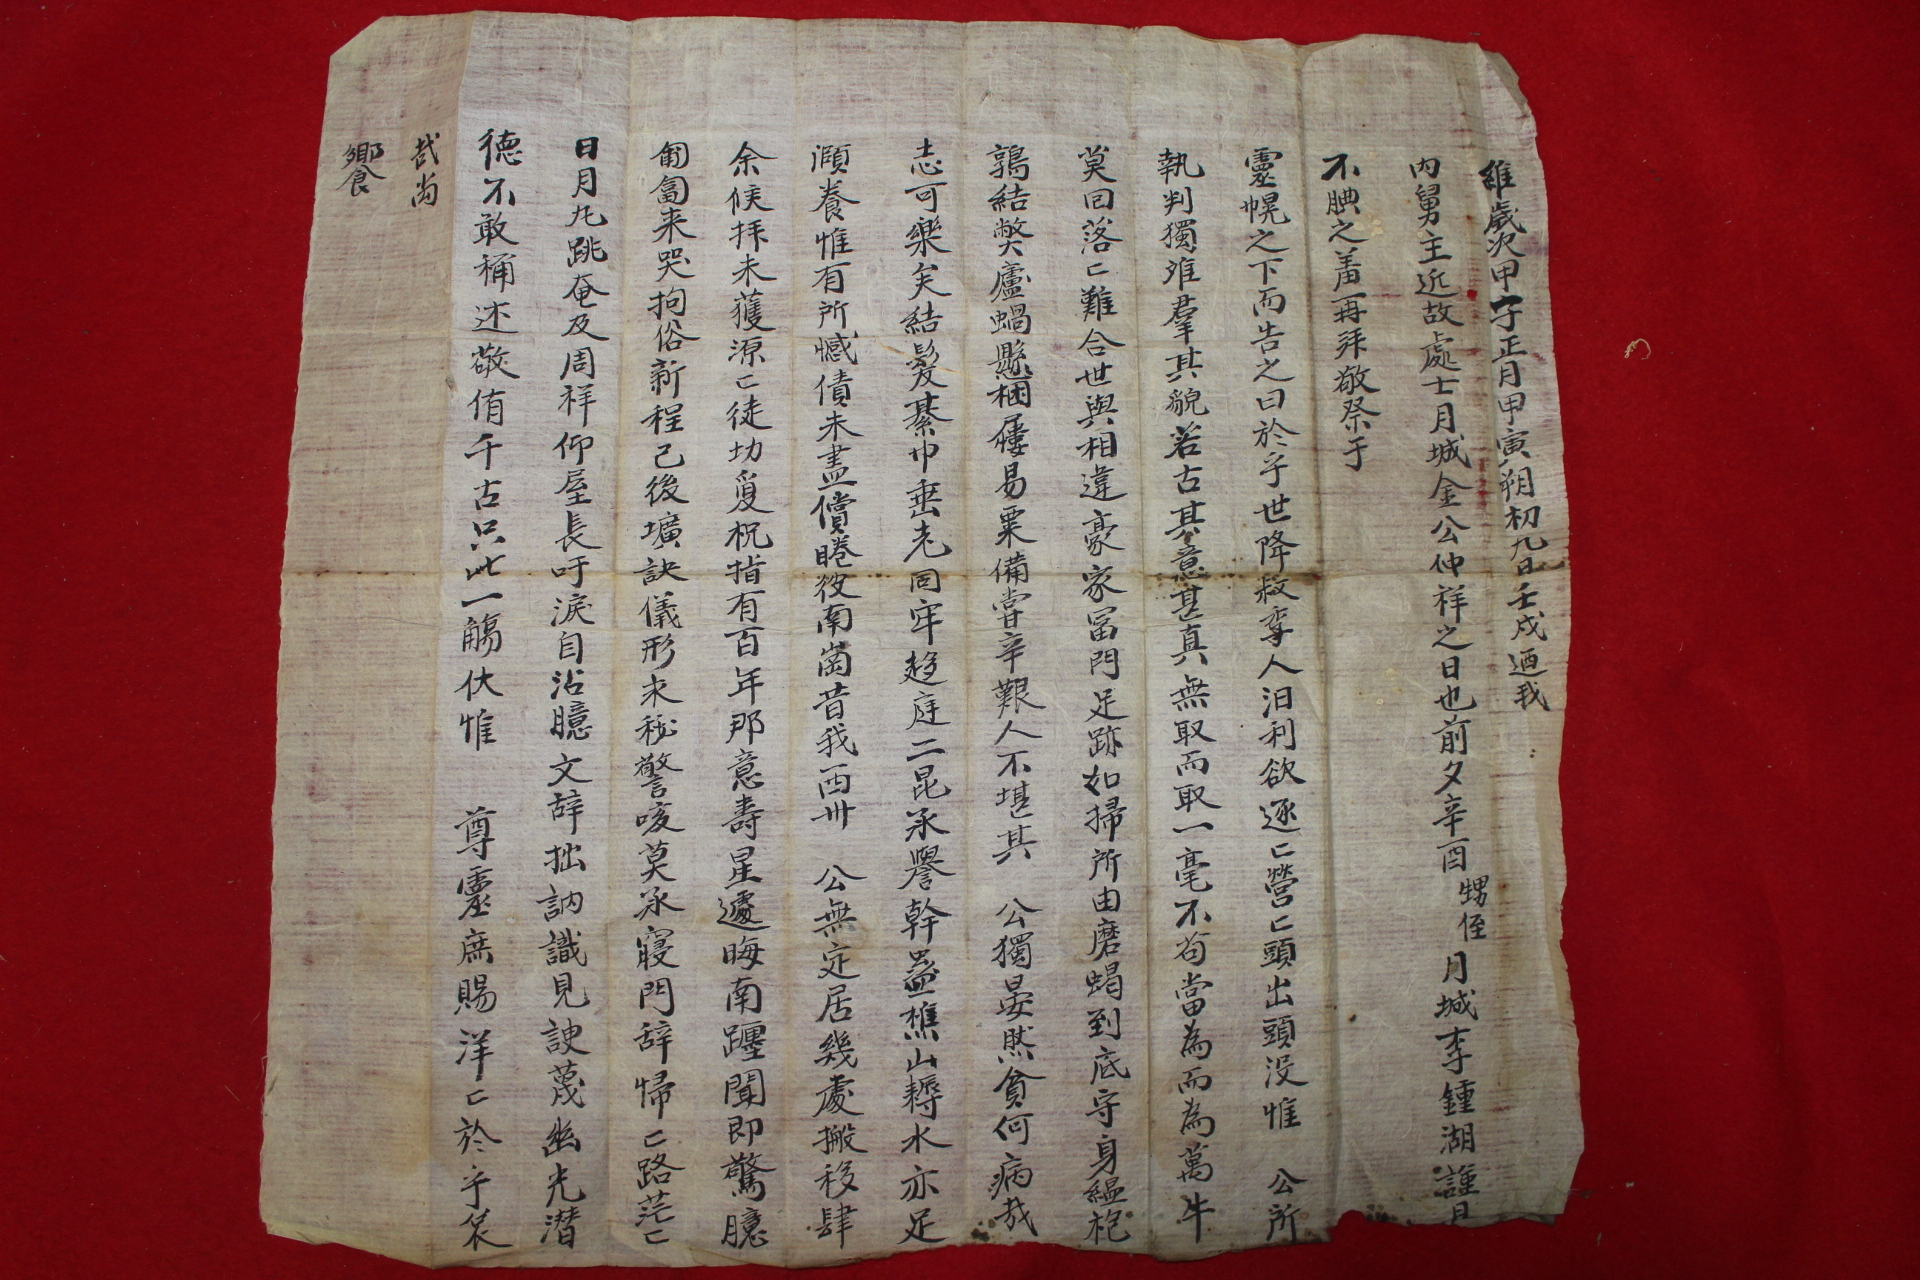 維歲次甲子正月甲寅朔初九日壬戌迺我
內舅主近故處士月城金公仲祥之日也前夕辛酉甥侄月城李鍾湖謹具
不腆之羞再拜敬祭于
靈幌之下而告之曰於乎世降教弛人汩利欲逐〻營〻頭出頭沒惟 公所
執判獨难羣其貌若古其意甚真無取而取一毫不苟當為而為萬牛
莫回落〻難合世與相違豪家冨門足跡如掃所由磨蝎到底守身縕袍
鶉結獘廬蝸縣梱屨易粟備嘗辛艱人不堪其 公獨晏然貧何病哉
志可樂矣結髮綦巾垂老同牢趍庭二昆承譽幹蛊樵山耨水亦足
頤養惟有所憾債未盡償睠彼南崗昔我西卅 公無定居幾處搬移肆
余候拜未獲源〻徒切爰祝指有百年那意壽星遽晦南躔聞即驚臆
匍匐来哭拘俗新程已後壙訣儀形永秘警咳莫承寢門辞帰〻路茫〻
日月九跳奄及周祥仰屋長吁淚自沾臆文辞拙訥識見諛蔑幽光潜
德不敢稱述敬侑千古只此一觴伏惟 尊靈庶賜洋〻於乎哀
哉尚
饗